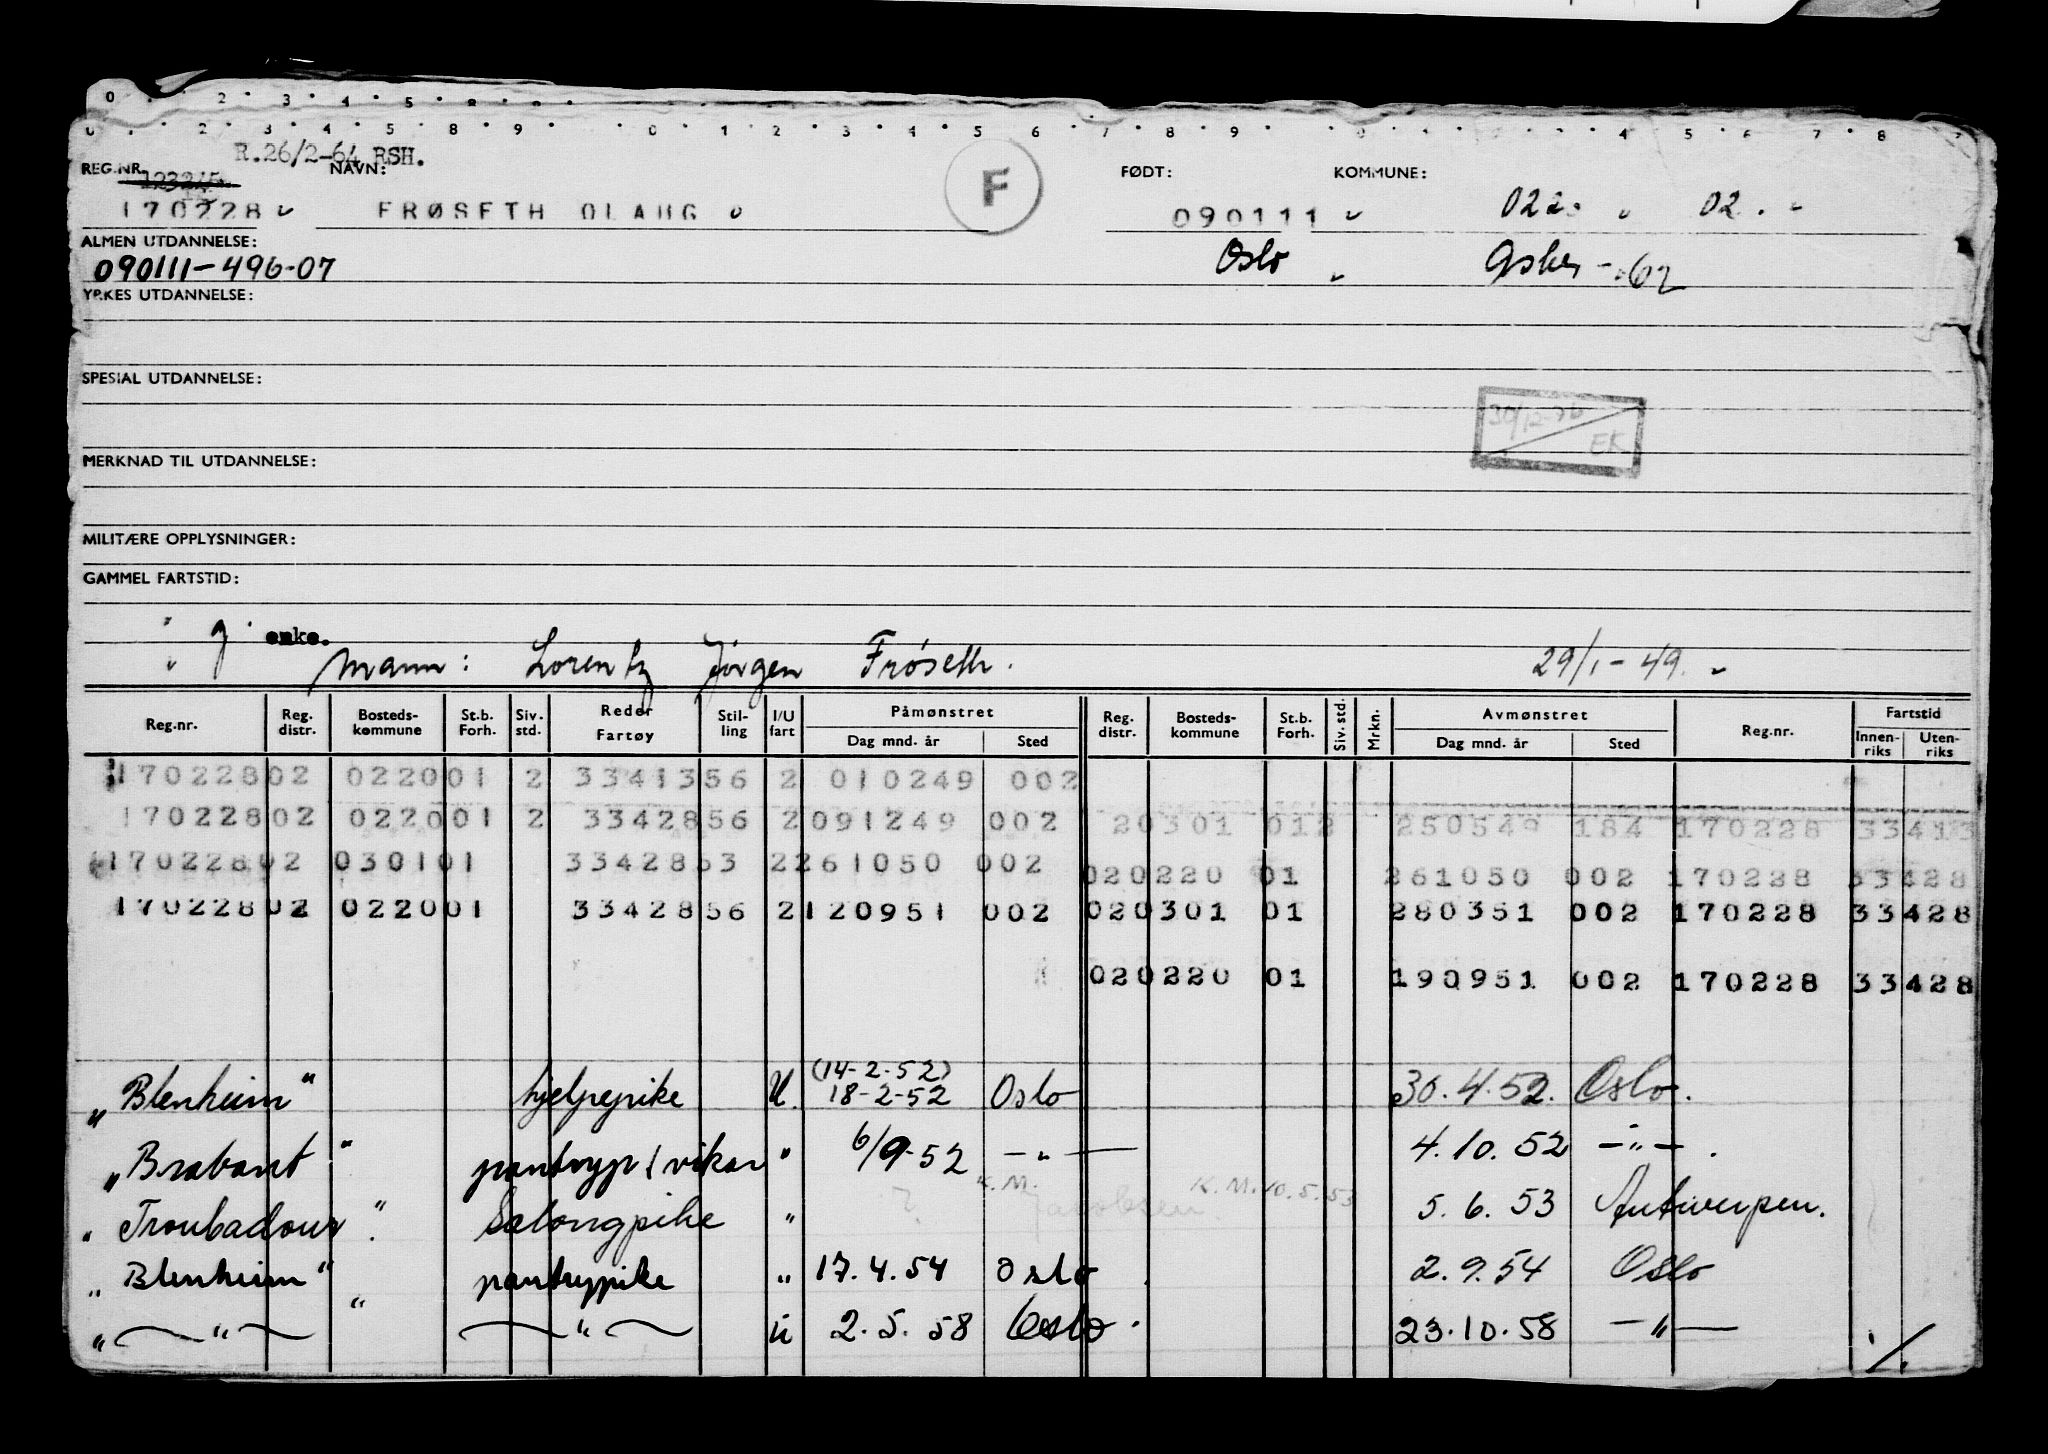 R.26/2-64 RSH.
REG.NR. 123245 NAVN: F FØDT: KOMMUNE:
170228 FRØSETH OLAUG 090111 0220 02
ALMEN UTDANNELSE:
090111-496-07 Oslo Asker - 62
YRKES UTDANNELSE:
SPESIAL UTDANNELSE:
30/12-76
EK
MERKNAD TIL UTDANNELSE:
MILITÆRE OPPLYSNINGER:
GAMMEL FARTSTID:
g enke.
Mann: Lorentz Jörgen Fröseth. 29/1-49.
Reg.nr. Reg. distr. Bosteds-kommune St.b. Forh. Siv. std. Reder Fartøy Stil-ling I/U fart Påmønstret Dag mnd. år Sted Reg. distr. Bosteds-kommune St.b. Forh. Siv. std. Mrkn. Avmønstret Dag mnd. år Sted Reg.nr. Fartstid Innen-riks Uten-riks
170228 02 0220 01 2 33413 56 2 010249 002
170228 02 0220 01 2 33428 56 2 091249 002 20301 012 250549 184 170228 33413
170228 02 0301 01 33428 53 2 261050 002 02 0220 01 261050 002 170228 33428
170228 02 0220 01 33428 56 2 120951 002 02 0301 01 280351 002 170228 33428
02 0220 01 190951 002 170228 33428
(14-2-52)
„Blenheim" hjelpepike U. 18-2-52 Oslo 30.4.52. Oslo.
„Brabant" pantryp/vikar " 6/9-52 — " — 4.10.52 — " — .
K.M. K.M. 10.5.53
„Troubadour". Salongpike " ? Jacobsen. 5.6.53 Antwerpen.
„Blenheim" pantrypike " 17.4.54 Oslo 2.9.54 Oslo
„ — " — " — " — ü 2.5.58 Oslo. 23.10.58 — " — ./.